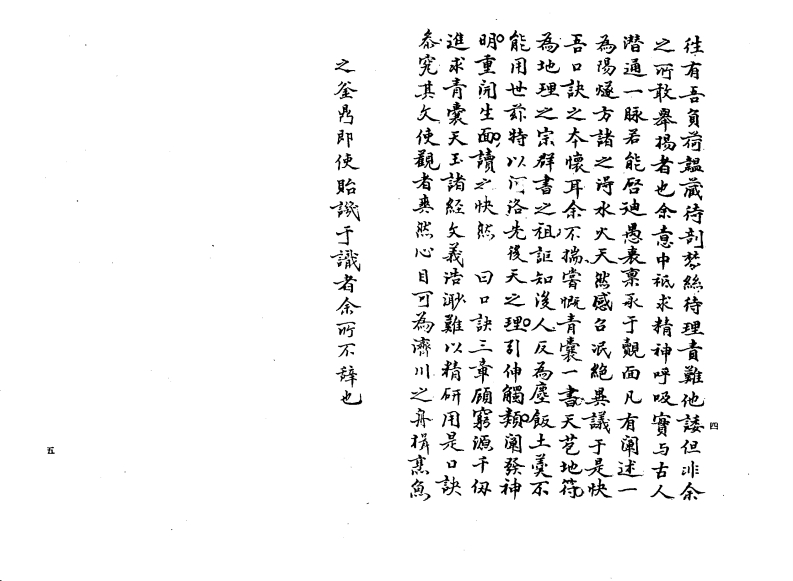 往有吾負荷韞藏待剖棼絲待理責難他諉但非余
之所敢舉揚者也余意中祗求精神呼吸實与古人
潛通一脉若能啓迪愚衷禀承于覿面凡有阐述一
為陽燧方諸之淂水火天然感召泯絶異議于是快
吾口訣之本懷耳余不揣嘗慨青囊一書天苞地符
為地理之宗群書之祖詎知後人反為塵飯土羹不
能用世兹特以河洛先後天之理引伸觸類阐發神
明重開生面讀之快然 曰口訣三章頋窮源千仭
進求青囊天玉諸經文義浩渺難以精研用是口訣
叅究其文使觀者爽然心目可為濟川之舟楫烹魚
四
之釜鬵即使貽譏于識者余所不辭也
五